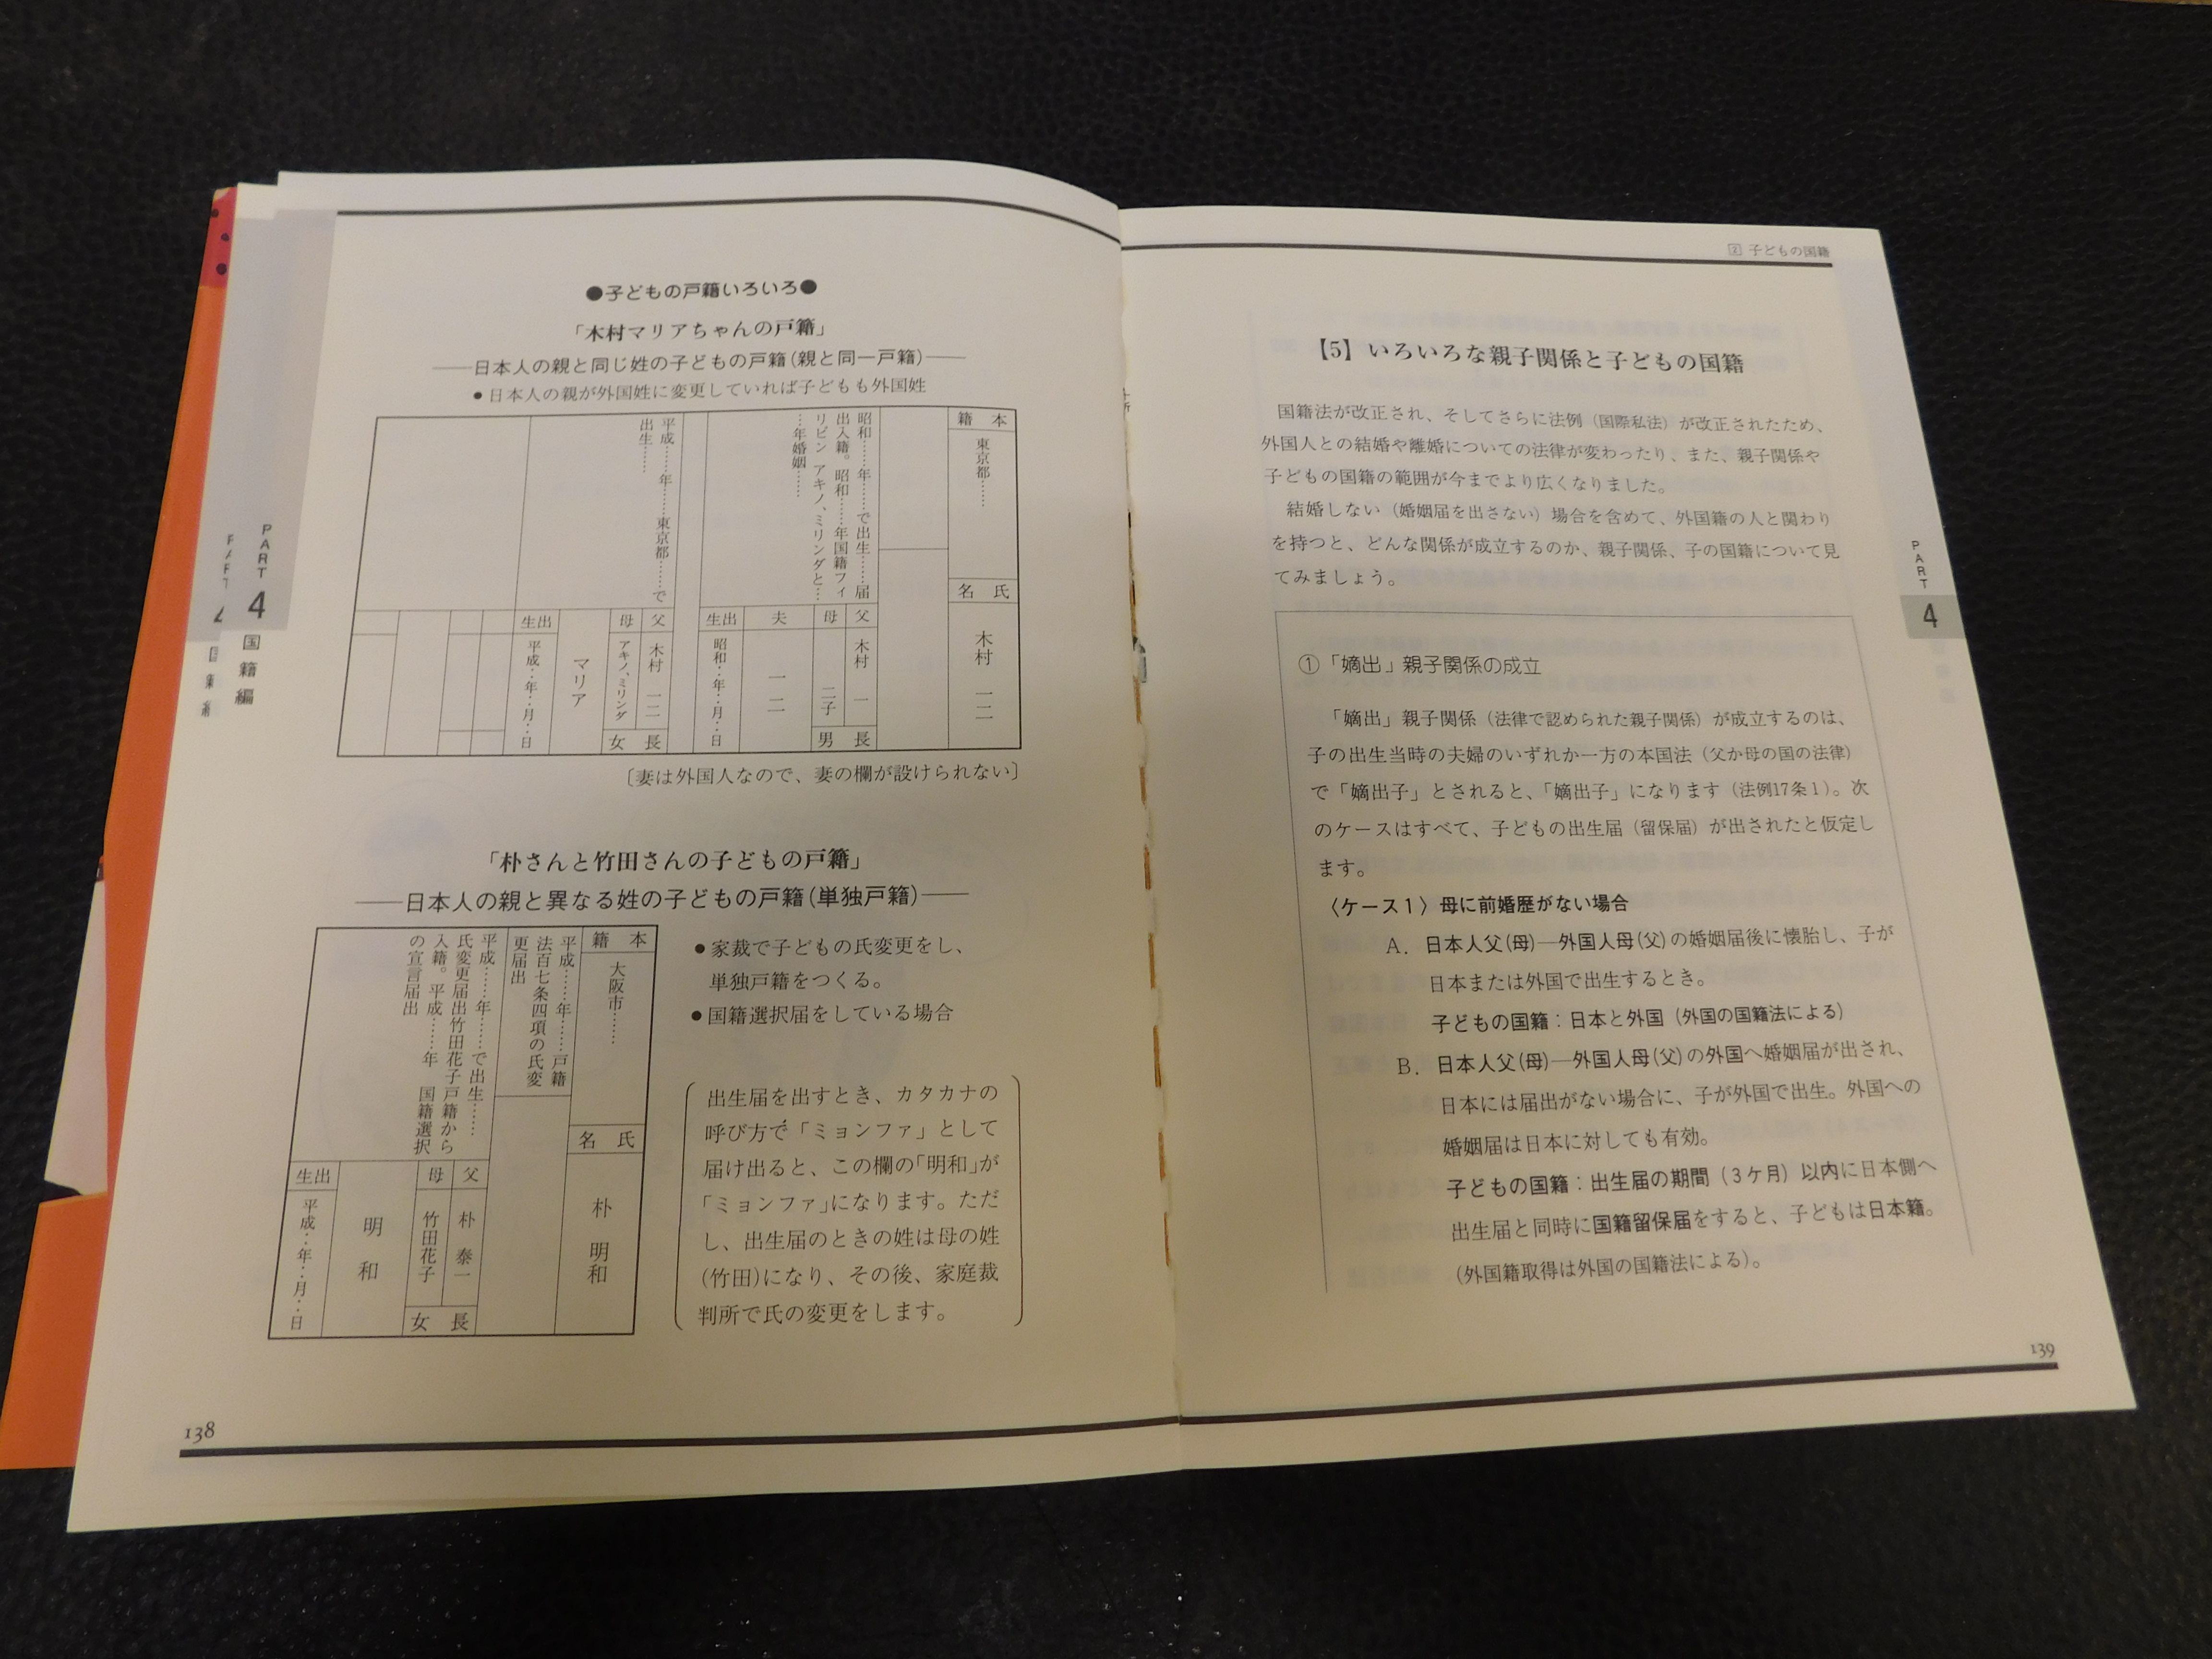 ●子どもの戸籍いろいろ●
「木村マリアちゃんの戸籍」
――日本人の親と同じ姓の子どもの戸籍(親と同一戸籍)――
●日本人の親が外国姓に変更していれば子どもも外国姓
本籍
東京都……
氏名
木村 一二
昭和……年……で出生……届
出入籍。昭和……年国籍フィ
リピン アキノ、ミリンダと…
…年婚姻……
父
木村 一
母
二子
長男
夫
一二
出生
昭和‥年‥月‥日
平成……年……東京都……で
出生……
父
木村 一二
母
アキノ、ミリンダ
長女
マリア
出生
平成‥年‥月‥日
〔妻は外国人なので、妻の欄が設けられない〕
「朴さんと竹田さんの子どもの戸籍」
――日本人の親と異なる姓の子どもの戸籍(単独戸籍)――
本籍
大阪市……
氏名
朴 明和
平成……年……戸籍
法百七条四項の氏変
更届出
平成……年……で出生……
氏変更届出竹田花子戸籍から
入籍。平成……年 国籍選択
の宣言届出
父
朴 泰一
母
竹田花子
長女
明和
出生
平成‥年‥月‥日
●家裁で子どもの氏変更をし、
単独戸籍をつくる。
●国籍選択届をしている場合
出生届を出すとき、カタカナの
呼び方で「ミョンファ」として
届け出ると、この欄の「明和」が
「ミョンファ」になります。ただ
し、出生届のときの姓は母の姓
(竹田)になり、その後、家庭裁
判所で氏の変更をします。
PART
4
国籍編
138
② 子どもの国籍
【5】いろいろな親子関係と子どもの国籍
国籍法が改正され、そしてさらに法例（国際私法）が改正されたため、
外国人との結婚や離婚についての法律が変わったり、また、親子関係や
子どもの国籍の範囲が今までより広くなりました。
結婚しない（婚姻届を出さない）場合を含めて、外国籍の人と関わり
を持つと、どんな関係が成立するのか、親子関係、子の国籍について見
てみましょう。
①「嫡出」親子関係の成立
「嫡出」親子関係（法律で認められた親子関係）が成立するのは、
子の出生当時の夫婦のいずれか一方の本国法（父か母の国の法律）
で「嫡出子」とされると、「嫡出子」になります（法例17条1）。次
のケースはすべて、子どもの出生届（留保届）が出されたと仮定し
ます。
〈ケース1〉母に前婚歴がない場合
A．日本人父(母)―外国人母(父)の婚姻届後に懐胎し、子が
日本または外国で出生するとき。
子どもの国籍：日本と外国（外国の国籍法による）
B．日本人父(母)―外国人母(父)の外国へ婚姻届が出され、
日本には届出がない場合に、子が外国で出生。外国への
婚姻届は日本に対しても有効。
子どもの国籍：出生届の期間（3ケ月）以内に日本側へ
出生届と同時に国籍留保届をすると、子どもは日本籍。
（外国籍取得は外国の国籍法による）。
PART
4
139